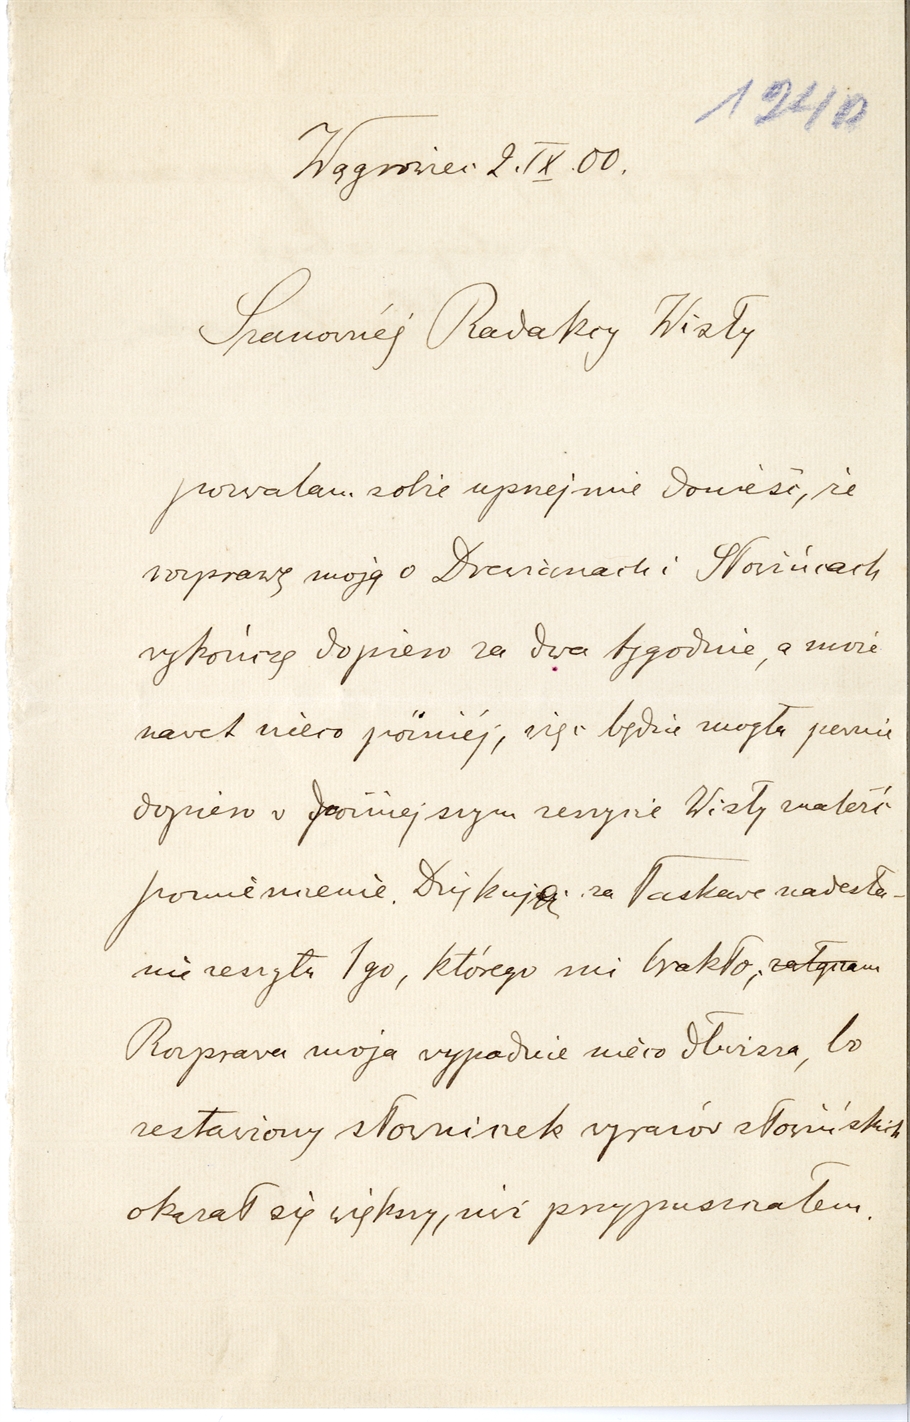 1940
Wągrowiec 2.IX.00.
Szanownéj Radakcy Wisły
pozwalam sobie uprzejmie donieść, że
rozprawę moją o Drewianach i Słowińcach
wykończę dopiero za dwa tygodnie, a może
nawet nieco późniéj, więc będzie mogła pewnie
dopiero w późniejszym zeszycie Wisły znaleść
pomieszczenie. Dziękuję za łaskawe nadesła-
nie zeszytu 1go, którego mi brakło,
Rozprawa moja wypadnie nieco dłuższa, bo
zestawiony słowniczek wyrazów słowińskich
okazał się większy, niż przypuszczałem.